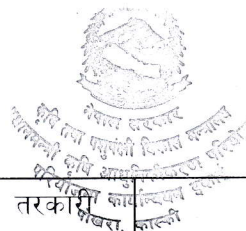 नेपाल सरकार
कृषि तथा पशुपन्छी विकास मन्त्रालय
प्रधानमन्त्री कृषि आधुनिकीकरण परियोजना
परियोजना कार्यान्वयन एकाई
पोखरा, कास्की
तरकारी